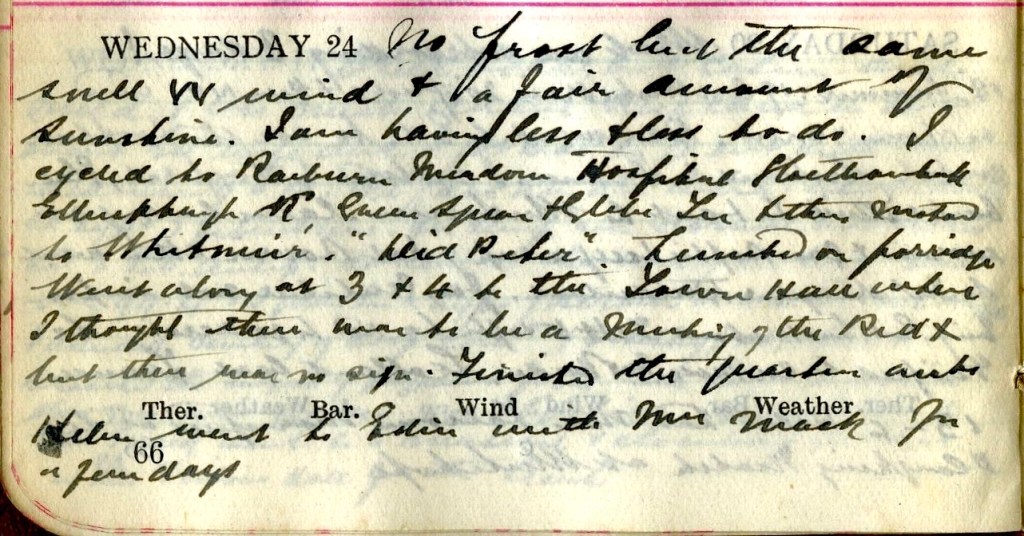 WEDNESDAY 24 No frost but the same
snell wind & a fair amount of
sunshine. I am having less & less to do. I
cycled to Raeburn Meadow Hospital
Green Spear & Glebe Tce & then motored
to Whitmuir. "Did Peter". Lunched on porridge
Went along at 3 & 4 to the Town Hall where
I thought there was to be a Meeting of the Red X
but there was no sign. Finished the quarter accts
Ther. Bar. Wind Weather
Helen went to Edin with Mrs Mack for
66
a few days